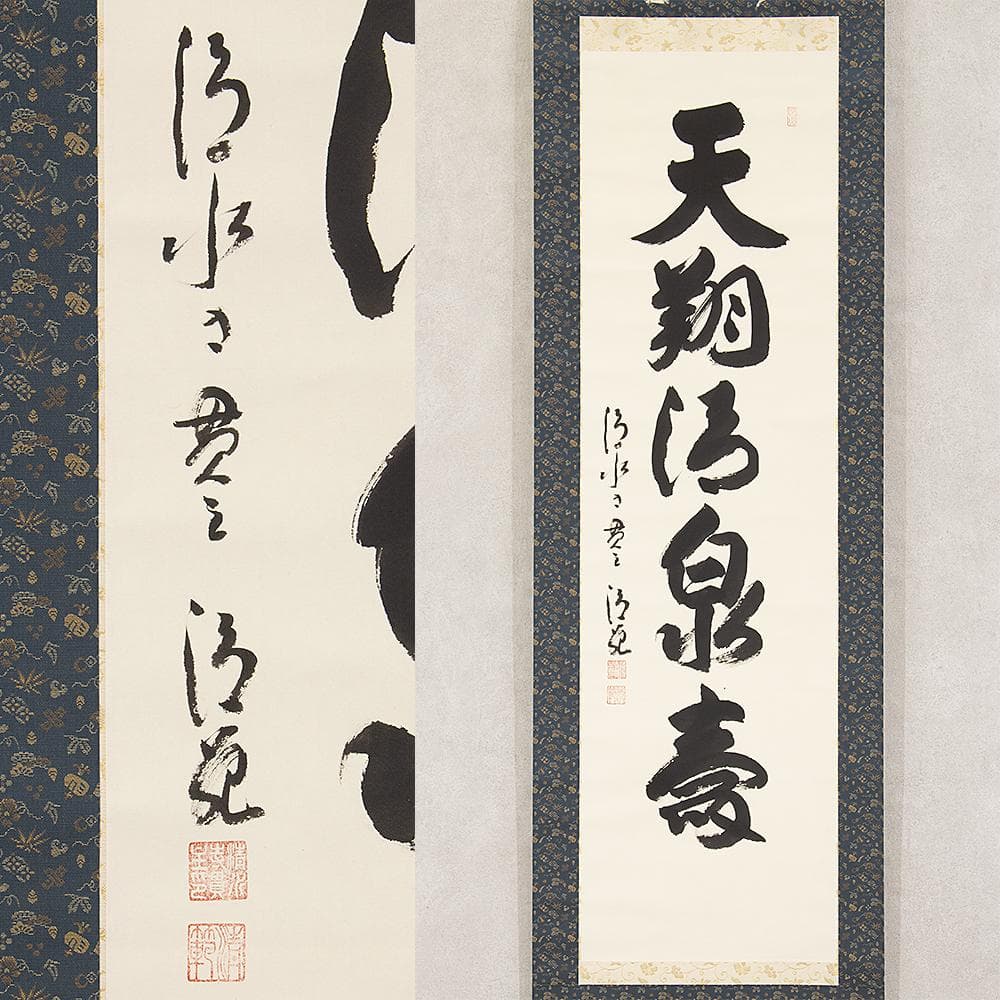 清水寺貫主 清範
清範
天翔清泉壽
清水寺貫主 清範